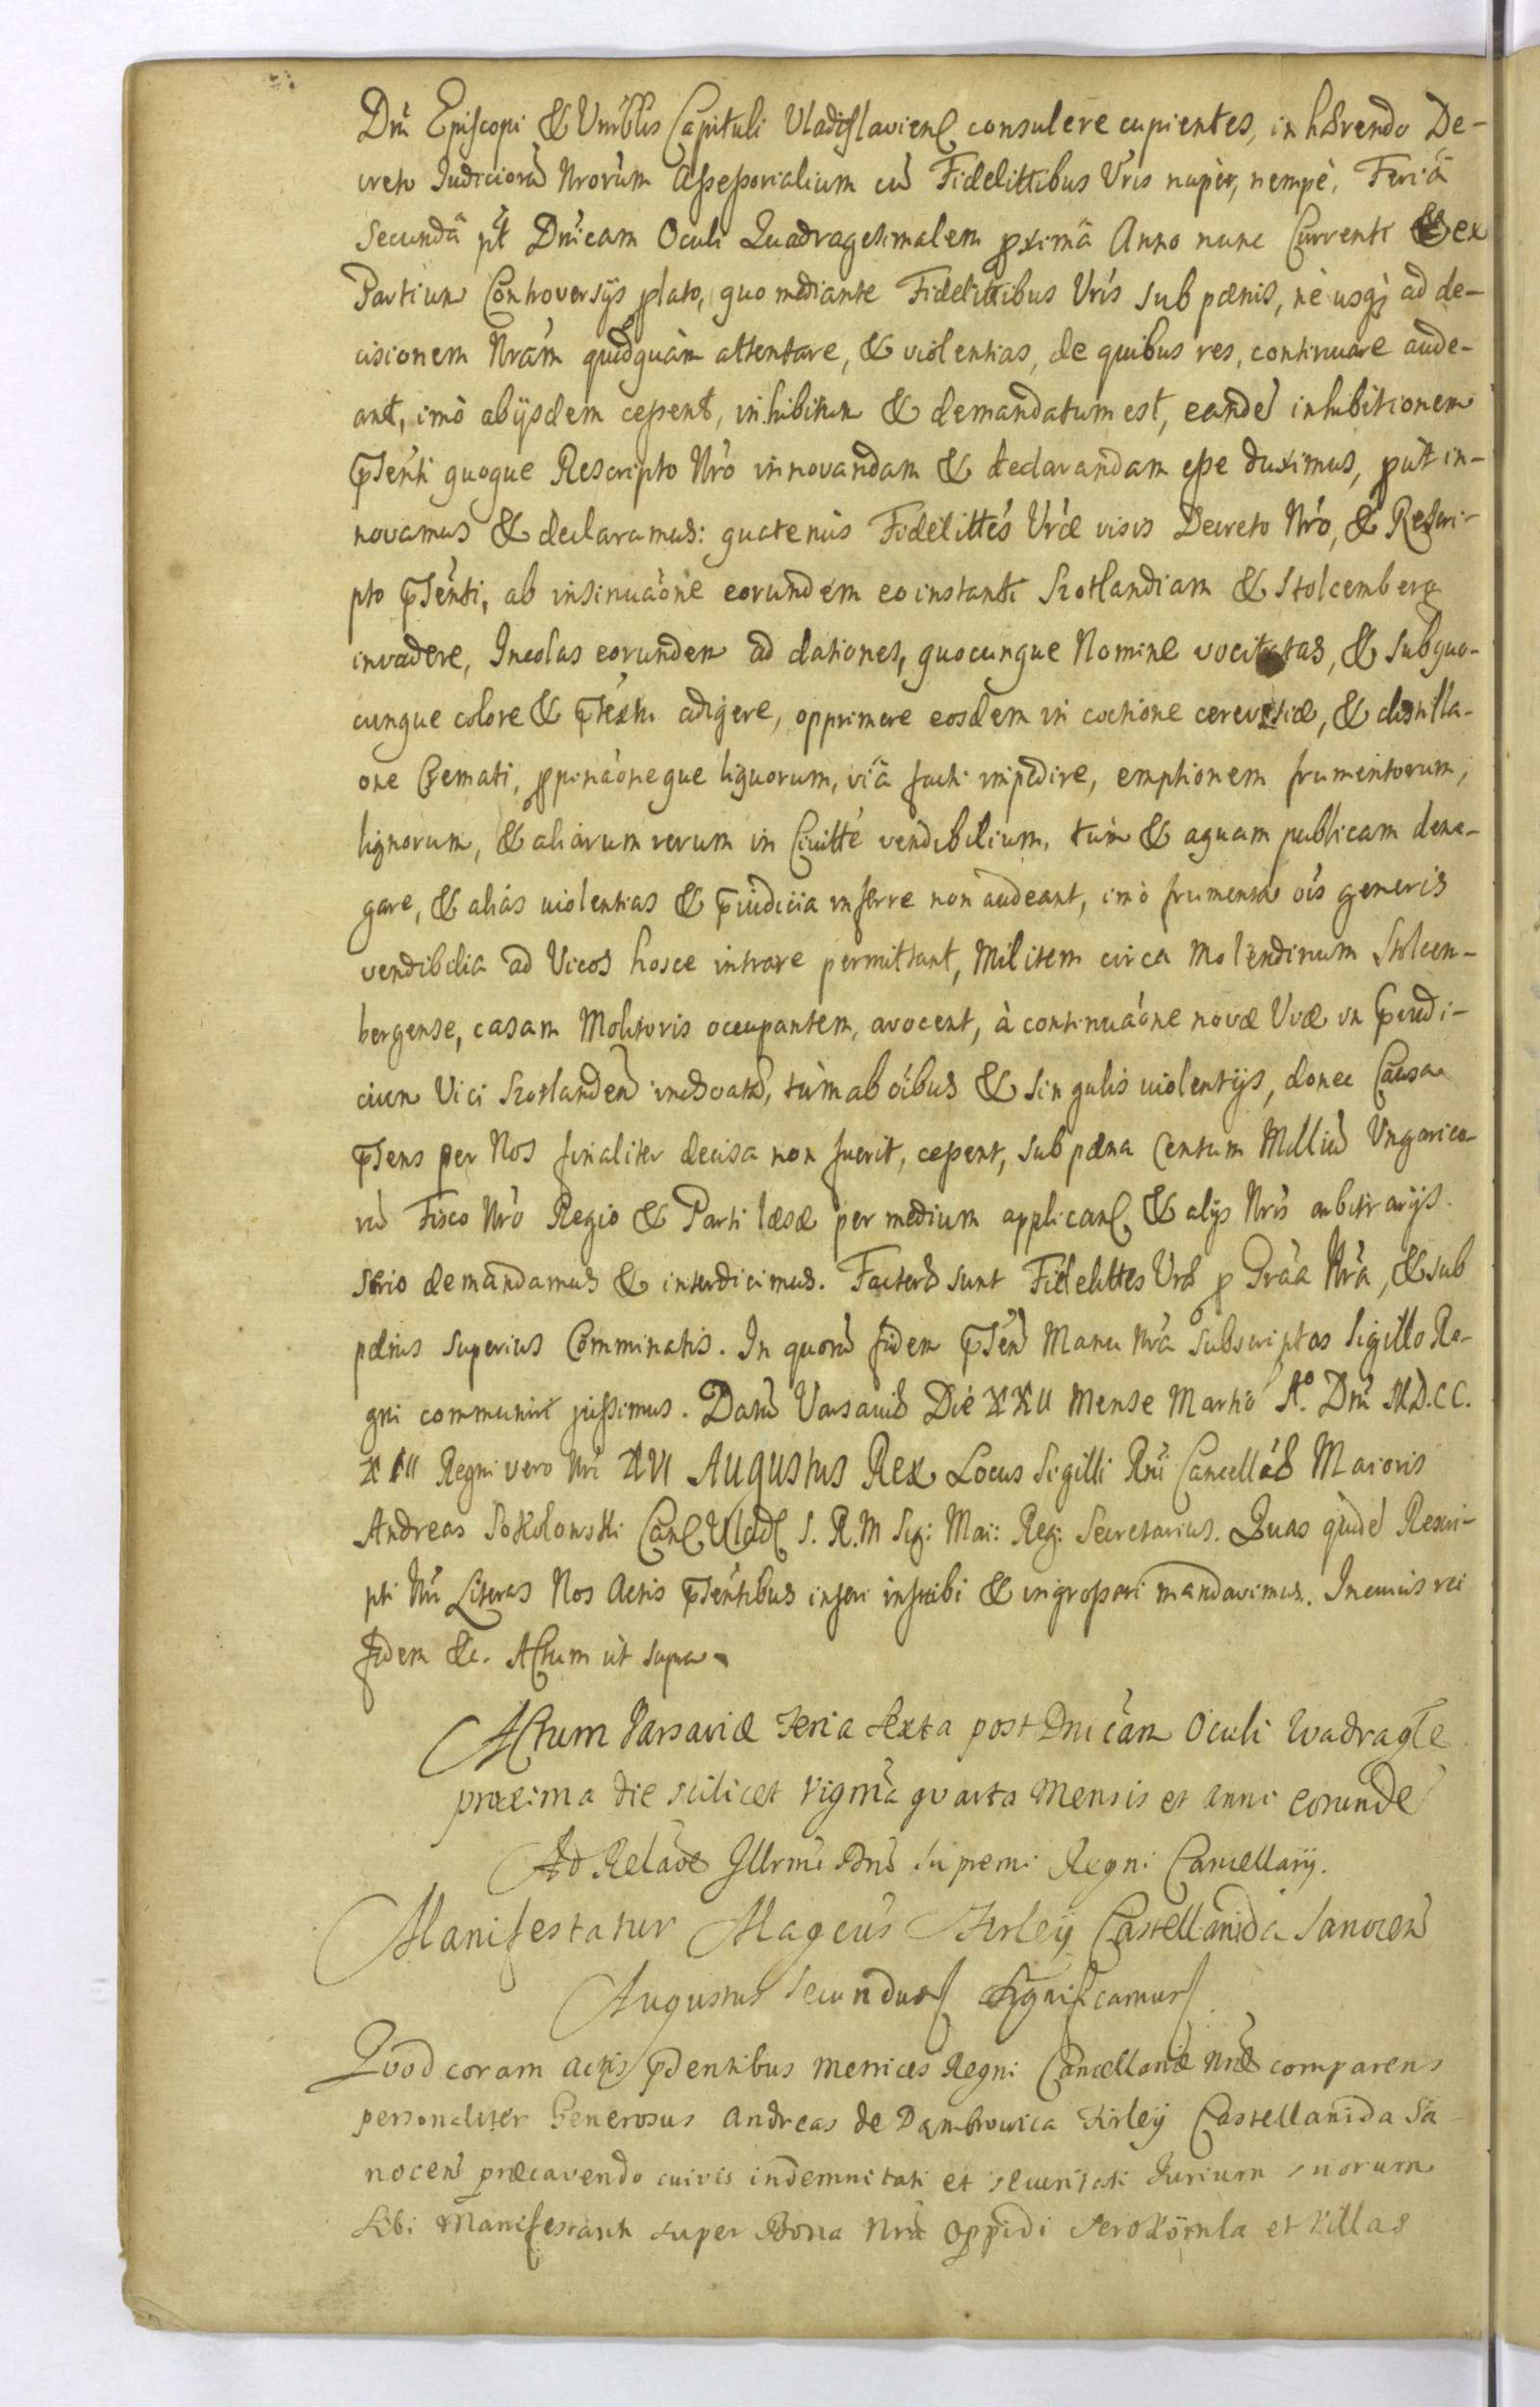 Dni Episcopi & Vnrblis Capituli Vladislavien consulere cupientes, inhærendo De-
creto Iudiciorū Nrorum Assessorialium cū Fidelittibus Vris nuper, nempè, Feriâ
Secundâ pt Dnicam Oculi Quadragesimalem pximâ Anno nunc Currenti & ex
Partium Controversijs plato, quo mediante Fidelittibus Vris sub pænis, nè usq; ad de-
cisionem Nram quidquam attentare, & violentias, de quibus res, continuare aude-
ant, imò ab ijsdem cessent, inhibitum & demandatum est, eandē inhibitionem
pnti quoque Rescripto Nro innovandam & declarandam esse duximus, put in-
novamus & declaramus: quatenùs Fidelittes Vræ visis Decreto Nro, & Rescri-
pto psenti, ab insinuaône eorundem eo instanti Szotlandiam & Stolcemberg
invadere, Incolas eorundem ad dationes, quocunque Nomine vocitatas, & sub quo-
cunque colore & ptextu adigere, opprimere eosdem in coctione cerevisiæ, & distilla-
one Cremati, ppinaôneque liquorum, viâ facti impedire, emptionem frumentorum,
lignorum, & aliarum rerum in Civitte vendibilium, tùm & aquam publicam dene-
gare, & alias violentias & piudicia inferre non audeant, imò frumenta ois generis
vendibilia ad Vicos hosce intrare permittant, Militem circa Molendinum Stolcen-
bergense, casam Molitoris occupantem, avocent, à continuaône novæ Viæ in piudi-
cium Vici Szotlanden inchoatæ, tùm ab oibus & singulis violentijs, donec Causa
psens per Nos finaliter decisa non fuerit, cessent, sub pæna Centum Milliū Ungarico-
rū Fisco Nro Regio & Parti læsæ per medium applican & alijs Nris arbitrarijs
serio demandamus & interdicimus. Facturæ sunt Fidelittes Vræ p Graa Nra, & sub
pænis superius Comminatis. In quorū fidem psen Manu Nra Subscriptas Sigillo Re-
gni communiri jussimus. Datū Varsaviæ Die XXII Mense Martio Ao. Dni M.D.CC.
XIII Regni vero Nri XVI Augustus Rex Locus Sigilli Rni Cancellæ Maioris
Andreas Sokolowski Can Vlad S. R. M Sig: Mai: Reg: Secretarius. Quas quidē Rescri-
pti Nri Literas Nos Actis psentibus inseri inscribi & ingrossari mandavimus. In cuius rei
fidem &c. Actum ut supra
Actum Varsaviæ Feria Sexta post Dnicam Oculi Quadragle
proxima die scilicet Vigma quarta Mensis et anni eorundē
Ad Relaoē Illrmi Dni Supremi Regni Cancellarij.
Manifestatur Magcus Firleij Castellanida Sanocen
Augustus Secundus Significamus
Quod coram actis pdentibus metrices Regni Cancellariæ Nræ comparens
personaliter Generosus Andreas de Dambrowica Firleij Castellanida Sa-
nocen præcavendo cuivis indemnitati et securitati Jurium suorum
sibi super Bona Nra Oppidi et Villas